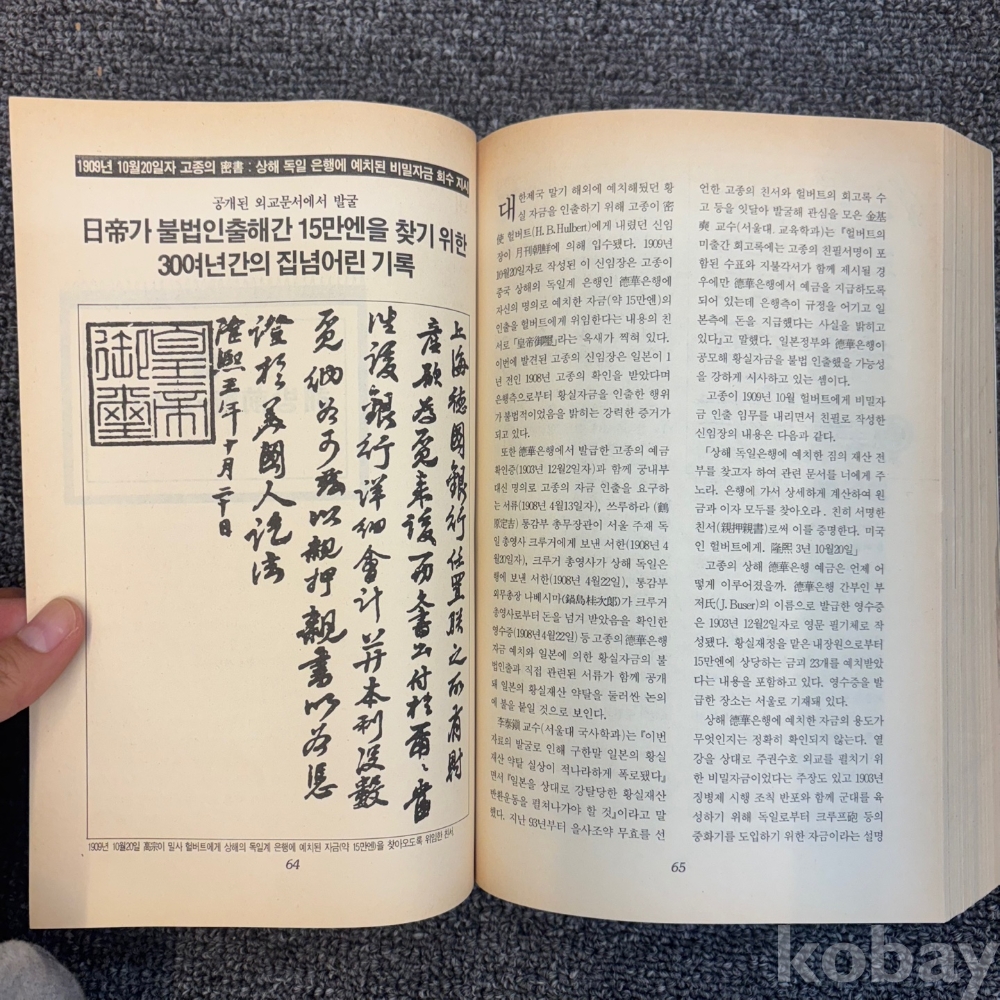 1909년 10월20일자 고종의 密書 : 상해 독일 은행에 예치된 비밀자금 회수 지시
공개된 외교문서에서 발굴
日帝가 불법인출해간 15만엔을 찾기 위한
30여년간의 집념어린 기록
上海德國銀行任置朕之所有財
產 為覓來 文書出付於爾〻當
往該銀行詳細會計并本利沒數
覓納為可茲以親押親書以為憑
證於美國人訖法
隆熙三年十月二十日
皇帝
御璽
1909년 10월20일 高宗이 밀사 헐버트에게 상해의 독일계 은행에 예치된 자금(약 15만엔)을 찾아오도록 위임한 친서.
64
대한제국 말기 해외에 예치해뒀던 황
실 자금을 인출하기 위해 고종이 密
使 헐버트(H. B. Hulbert)에게 내렸던 신임
장이 月刊朝鮮에 의해 입수됐다. 1909년
10월20일자로 작성된 이 신임장은 고종이
중국 상해의 독일계 은행인 德華은행에
자신의 명의로 예치한 자금(약 15만엔)의
인출을 헐버트에게 위임한다는 내용의 친
서로 「皇帝御璽」라는 옥새가 찍혀 있다.
이번에 발견된 고종의 신임장은 일본이 1
년 전인 1908년 고종의 확인을 받았다며
은행측으로부터 황실자금을 인출한 행위
가 불법적이었음을 밝히는 강력한 증거가
되고 있다.
또한 德華은행에서 발급한 고종의 예금
확인증(1903년 12월2일자)과 함께 궁내부
대신 명의로 고종의 자금 인출을 요구하
는 서류(1908년 4월13일자), 쓰루하라(鶴
原定吉) 통감부 총무장관이 서울 주재 독
일 총영사 크루거에게 보낸 서한(1908년 4
월20일자), 크루거 총영사가 상해 독일은
행에 보낸 서한(1908년 4월22일), 통감부
외무총장 나베시마(鍋島桂次郞)가 크루거
총영사로부터 돈을 넘겨 받았음을 확인한
영수증(1908년 4월22일) 등 고종의 德華은행
자금 예치와 일본에 의한 황실자금의 불
법인출과 직접 관련된 서류가 함께 공개
돼 일본의 황실재산 약탈을 둘러싼 논의
에 불을 붙일 것으로 보인다.
李泰鎭 교수(서울대 국사학과)는 『이번
자료의 발굴로 인해 구한말 일본의 황실
재산 약탈 실상이 적나라하게 폭로됐다』
면서 『일본을 상대로 강탈당한 황실재산
반환운동을 펼쳐나가야 할 것』이라고 말
했다. 지난 93년부터 을사조약 무효를 선
언한 고종의 친서와 헐버트의 회고록 수
고 등을 잇달아 발굴해 관심을 모은 金基
奭 교수(서울대. 교육학과)는 『헐버트의
미출간 회고록에는 고종의 친필서명이 포
함된 수표와 지불각서가 함께 제시될 경
우에만 德華은행에서 예금을 지급하도록
되어 있는데 은행측이 규정을 어기고 일
본측에 돈을 지급했다는 사실을 밝히고
있다』고 말했다. 일본정부와 德華은행이
공모해 황실자금을 불법 인출했을 가능성
을 강하게 시사하고 있는 셈이다.
고종이 1909년 10월 헐버트에게 비밀자
금 인출 임무를 내리면서 친필로 작성한
신임장의 내용은 다음과 같다.
「상해 독일은행에 예치한 짐의 재산 전
부를 찾고자 하여 관련 문서를 너에게 주
노라. 은행에 가서 상세하게 계산하여 원
금과 이자 모두를 찾아오라. 친히 서명한
친서(親押親書)로써 이를 증명한다. 미국
인 헐버트에게. 隆熙 3년 10월20일」
고종의 상해 德華은행 예금은 언제 어
떻게 이루어졌을까. 德華은행 간부인 부
저氏(J. Buser)의 이름으로 발급한 영수증
은 1903년 12월2일자로 영문 필기체로 작
성됐다. 황실재정을 맡은 내장원으로부터
15만엔에 상당하는 금괴 23개를 예치받았
다는 내용을 포함하고 있다. 영수증을 발
급한 장소는 서울로 기재돼 있다.
상해 德華은행에 예치한 자금의 용도가
무엇인지는 정확히 확인되지 않는다. 열
강을 상대로 주권수호 외교를 펼치기 위
한 비밀자금이었다는 주장도 있고 1903년
징병제 시행 조칙 반포와 함께 군대를 육
성하기 위해 독일로부터 크루프砲 등의
중화기를 도입하기 위한 자금이라는 설명
65
kobay